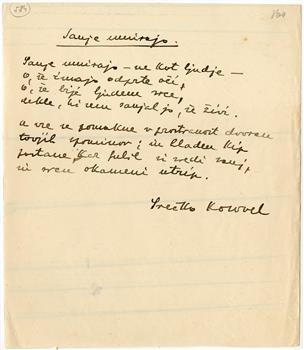 584
Sanje umirajo.
Sanje umirajo – ne kot ljudje –
o, še imajo odprte oči,
o, še bije ljudem srce,
dekle, ki sem sanjal jo, še živi.
a vse se pomakne v prostranost dvoran
tvojih spominov; in hladen kip
postane kar
srcu okameni utrip.
Srečko Kosovel